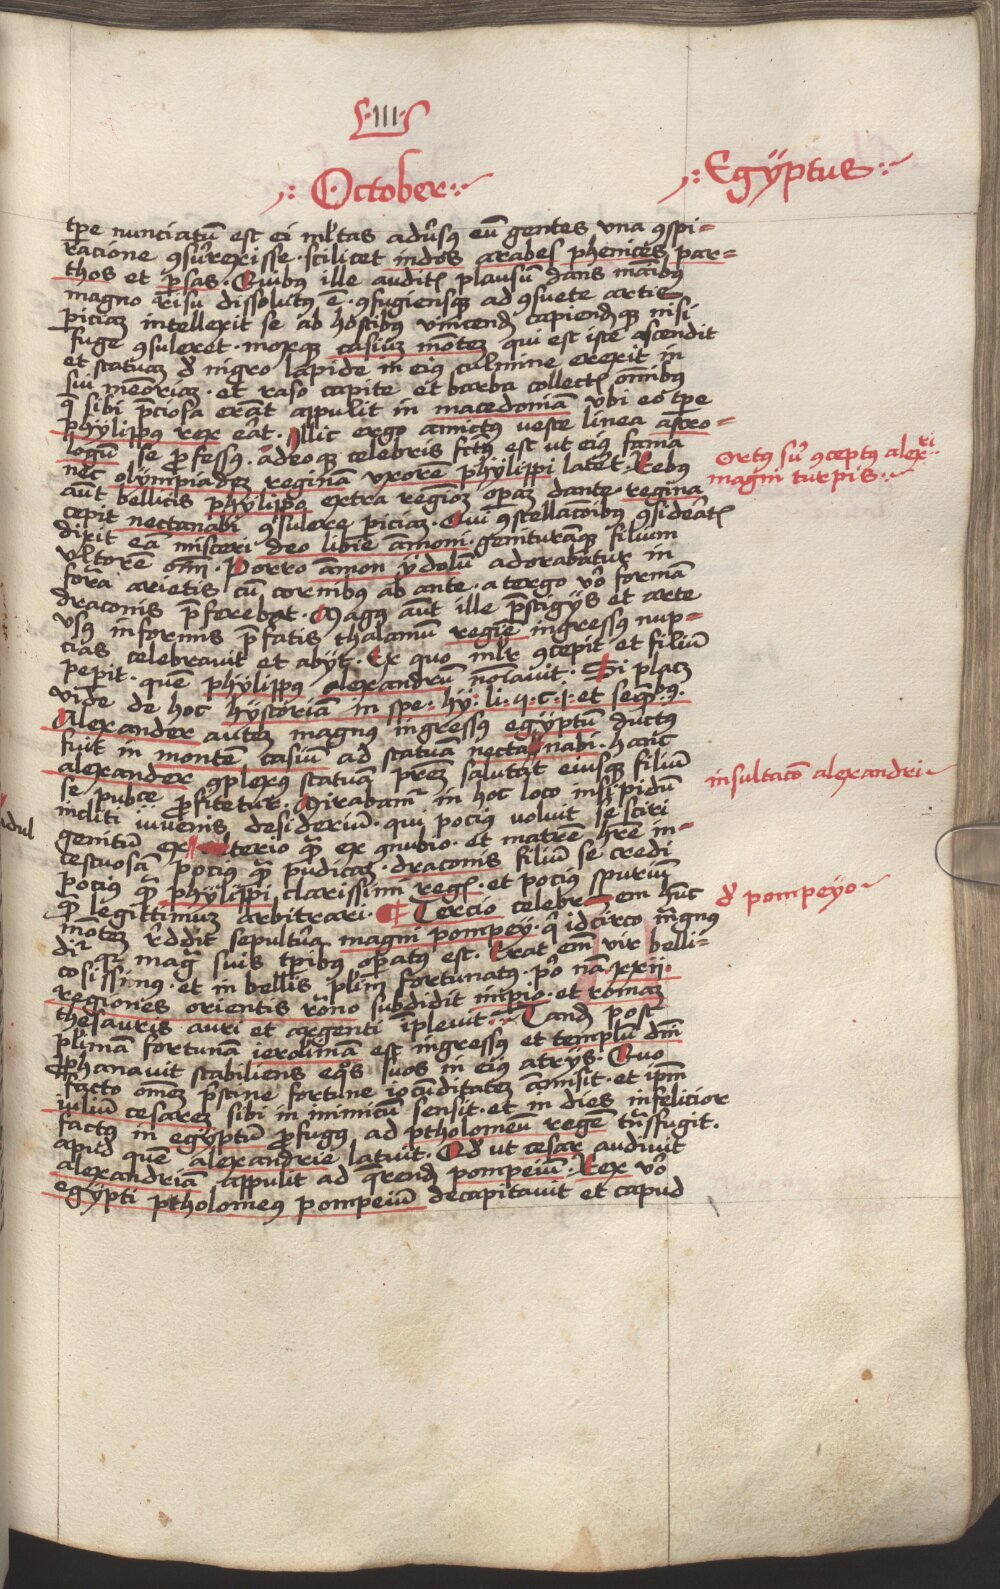 ·III·
October
Egÿptus
tp̄e nunciatū est ei ml̄tas adūsꝯ eū gentes vna ꝯspi=
racione ꝯsūrexisse · scilicet indos arabes phenices par=
thos et p̄sas · Quibꝯ ille auditꝭ plausū dans manibꝯ
magno risu dissolutꝯ ē · ꝯfugiensqꝫ ad ꝯsuete artis
piciaꝫ intellexit se ab hostibꝯ vincend̄ capiend̄qꝫ nisi
fuge ꝯsuleret · moxqꝫ casiuꝫ mōteꝫ qui est iste ascendit
et statuaꝫ d̄ nigro lapide in eiꝯ culmine erexit in
sui memōriaꝫ · et raso capite et barba collectꝭ omībꝯ
q̄ sibi p̄ciosa erāt appulit in macedoniā vbi eo tp̄e
phÿlippꝯ rex eāt · Illic ergo amictꝯ veste linea astro=
logū se ꝓfessꝯ · adeoqꝫ celebris fctꝯ est ut eiꝯ fama
nec olÿmpiadeꝫ reginā vxorē phÿlippi latēt · Rebꝯ
aūt bellicis phÿlippo extra regnoꝫ opaꝫ dante · regina
cepit nectanabi ꝯsulere piciaꝫ · Qui ꝯstellacōibꝯ ꝯsideātꝭ
dixit eā misceri deo libie āmoni · genituramqꝫ filium
vltorē om̄i · Porro āmon ÿdolū adorabatur in
forā arietis cū cornibꝯ ab ante · a tergo vo formā
draconis p̄ferebat · Magꝯ aūt ille p̄stigÿs et arte
vsꝯ informis p̄fatis thalamū regie ingressꝯ nup=
cias celebravit et abÿt · Ex quo ml̄r ꝯcepit et filiū
pepit · quē phÿlippꝯ alexandrū noīavit · Si placꝫ
vide de hoc hÿstoriā in spe · hÿ · li · 4 · c · j · et seqn̄bꝯ ·
Alexander auteꝫ magnus ingressꝯ egÿptū ductꝯ
fuit in montē casiū ad statuā nectanabi · hanc
alexander ꝯplexꝯ statuā p̄reꝫ salutat eiusqꝫ filiū
se pubce ꝓfitetur · Mirabam̄ in hoc loco insipidū
incliti iuvenis desideriū · qui pociꝯ voluit se sciri
genitū ex terio qꝫ̄ ex ꝯnubio · et matrē h̄re in=
cestuosā pociꝯ qꝫ̄ pudicaꝫ · draconis filiū se credi
pociꝯ qꝫ̄ phÿlippi clarissimi regꝭ · et pociꝯ spuriū
qꝫ̄ legittimuꝫ arbitrari · Tercio celebr em hūc
mōteꝫ r̄ddit sepultūa magni pompeÿ · q̄ idcirco mgnꝯ
dr̄ qꝛ maḡ suis tpibꝯ opatꝯ est · Erat em̄ vir belli=
cosissimus · et in bellis pl̄im̄ fortunatꝯ · po nā xxij ·
regiones orientis rāno subdidit impio · et romaꝫ
thesauris auri et argenti īplevit · Tand̄ post
pl̄imā fortunā ierolimā est ingressꝯ et templū dm̄
ꝓphanavit stabiliens eqꝯs suos in eiꝯ atrÿs · Quo
facto omēꝫ p̄stine fortune iocūditateꝫ āmisit · et ip̄m
iuliū cesareꝫ sibi in inimicū sensit · et in dies infelicior
factꝯ in egÿptū ꝓfugꝯ ad ptholomeū regē tn̄sfugit ·
apud quē alexandrie latuit · Qd̄ ut cesar audiuit
alexandriā appulit ad q̄rend̄ pompeiū · Rex vo
egÿpti ptholomeꝯ pompeiū decapitavit et capud
Ortꝯ sū ꝯceptꝯ alexri
magni turpis ·
insultacō alexandri
d̄ pompeÿo